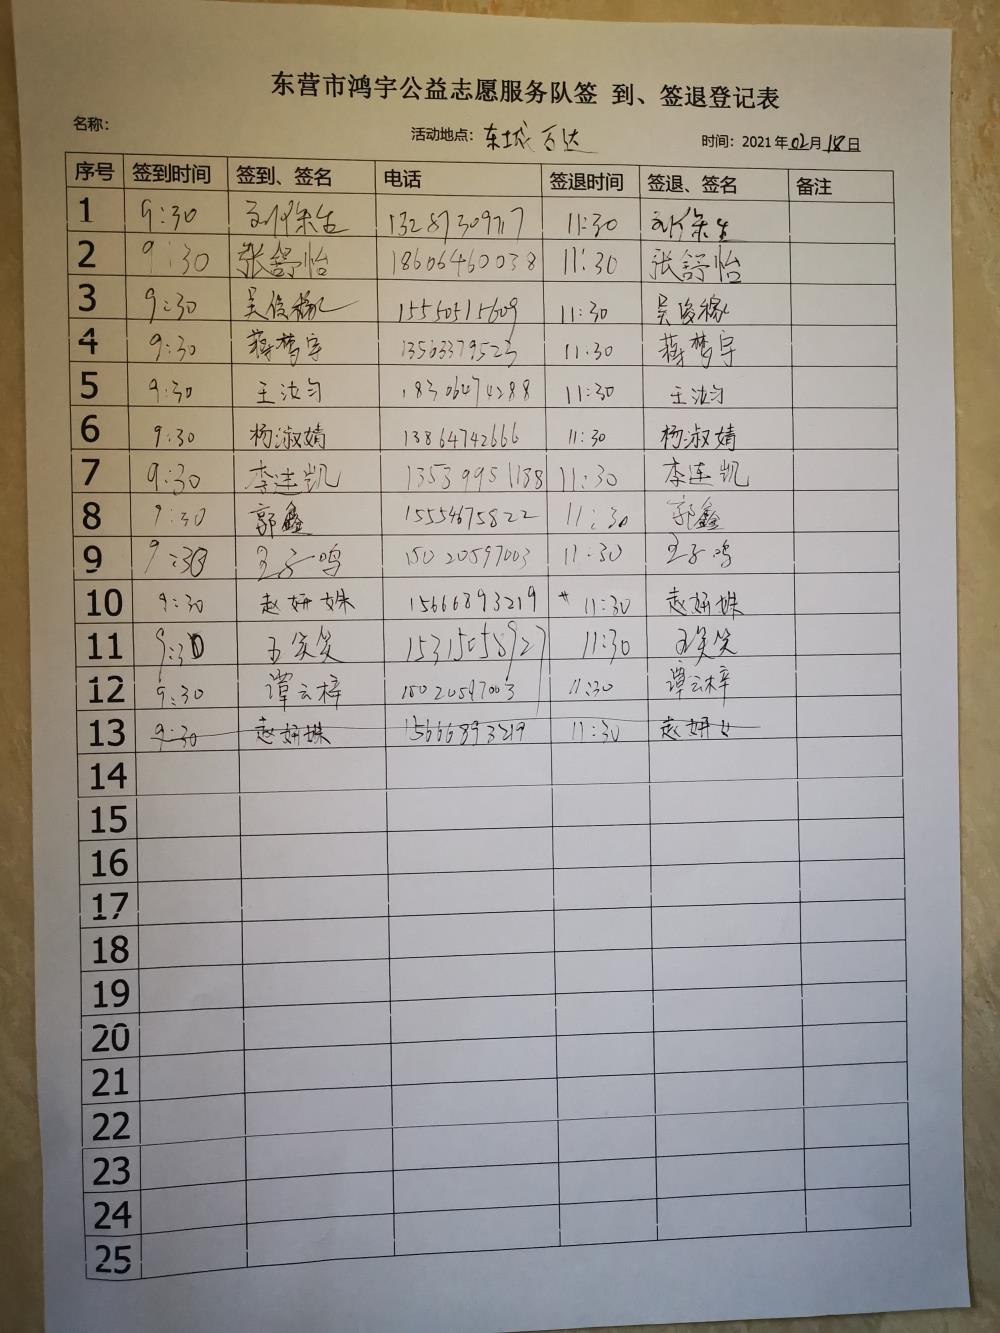 东营市鸿宇公益志愿服务队签 到、签退登记表
名称: 活动地点: 东城万达 时间: 2021年02月18日
序号 签到时间 签到、签名 电话 签退时间 签退、签名 备注
1 9:30 11:30
2 9:30 张舒怡 18606460038 11:30 张舒怡
3 9:30 15550515609 11:30
4 9:30 蒋梦宇 13563379523 11:30 蒋梦宇
5 9:30 王汝习 18306474288 11:30 王汝习
6 9:30 杨淑婧 13864742666 11:30 杨淑婧
7 9:30 李连凯 13539951138 11:30 李连凯
8 9:30 郭鑫 15554675822 11:30 郭鑫
9 9:30 王子鸣 15020597003 11:30 王子鸣
10 9:30 赵妍姝 15666893219 * 11:30 赵妍姝
11 9:30 王笑笑 15315058927 11:30 王笑笑
12 9:30 谭云梓 15020597003 11:30 谭云梓
13 9:30 赵妍姝 15666893219 11:30 赵妍女
14
15
16
17
18
19
20
21
22
23
24
25